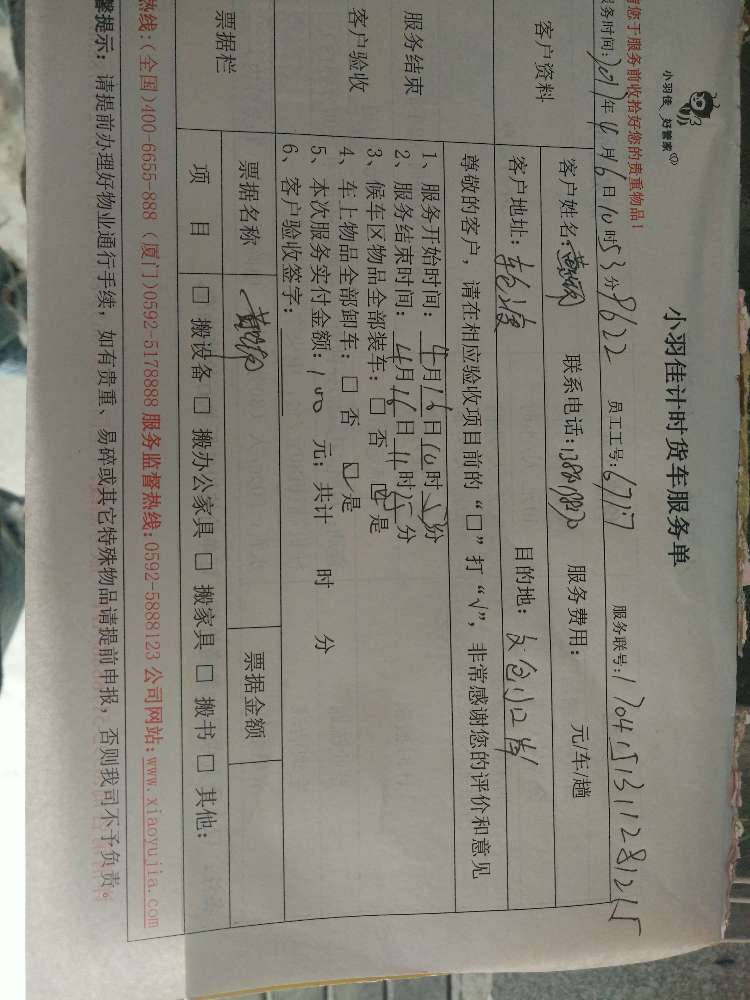 小羽佳 好管家
小羽佳计时货车服务单
您于服务前收拾好您的贵重物品！
务时间：2017年4月16日10时53分 8622 员工工号：6717 服务联号：1704151311281215
客户资料
客户姓名： 联系电话： 服务费用： 元/车/趟
客户地址： 目的地：
服务结束
客户验收
尊敬的客户，请在相应验收项目前的“□”打“√”，非常感谢您的评价和意见
1、服务开始时间：4月16日10时分
2、服务结束时间：4月16日11时15分
3、候车区物品全部装车：□否 □是
4、车上物品全部卸车：□否 □是
5、本次服务实付金额：100元；共计 时 分
6、客户验收签字：
票据栏
票据名称 票据金额
项目 □搬设备 □搬办公家具 □搬家具 □搬书 □其他：
热线：(全国)400-6655-888 (厦门)0592-5178888 服务监督热线：0592-5888123 公司网站：www.xiaoyujia.com
馨提示：请提前办理好物业通行手续，如有贵重、易碎或其它特殊物品请提前申报，否则我司不予负责。